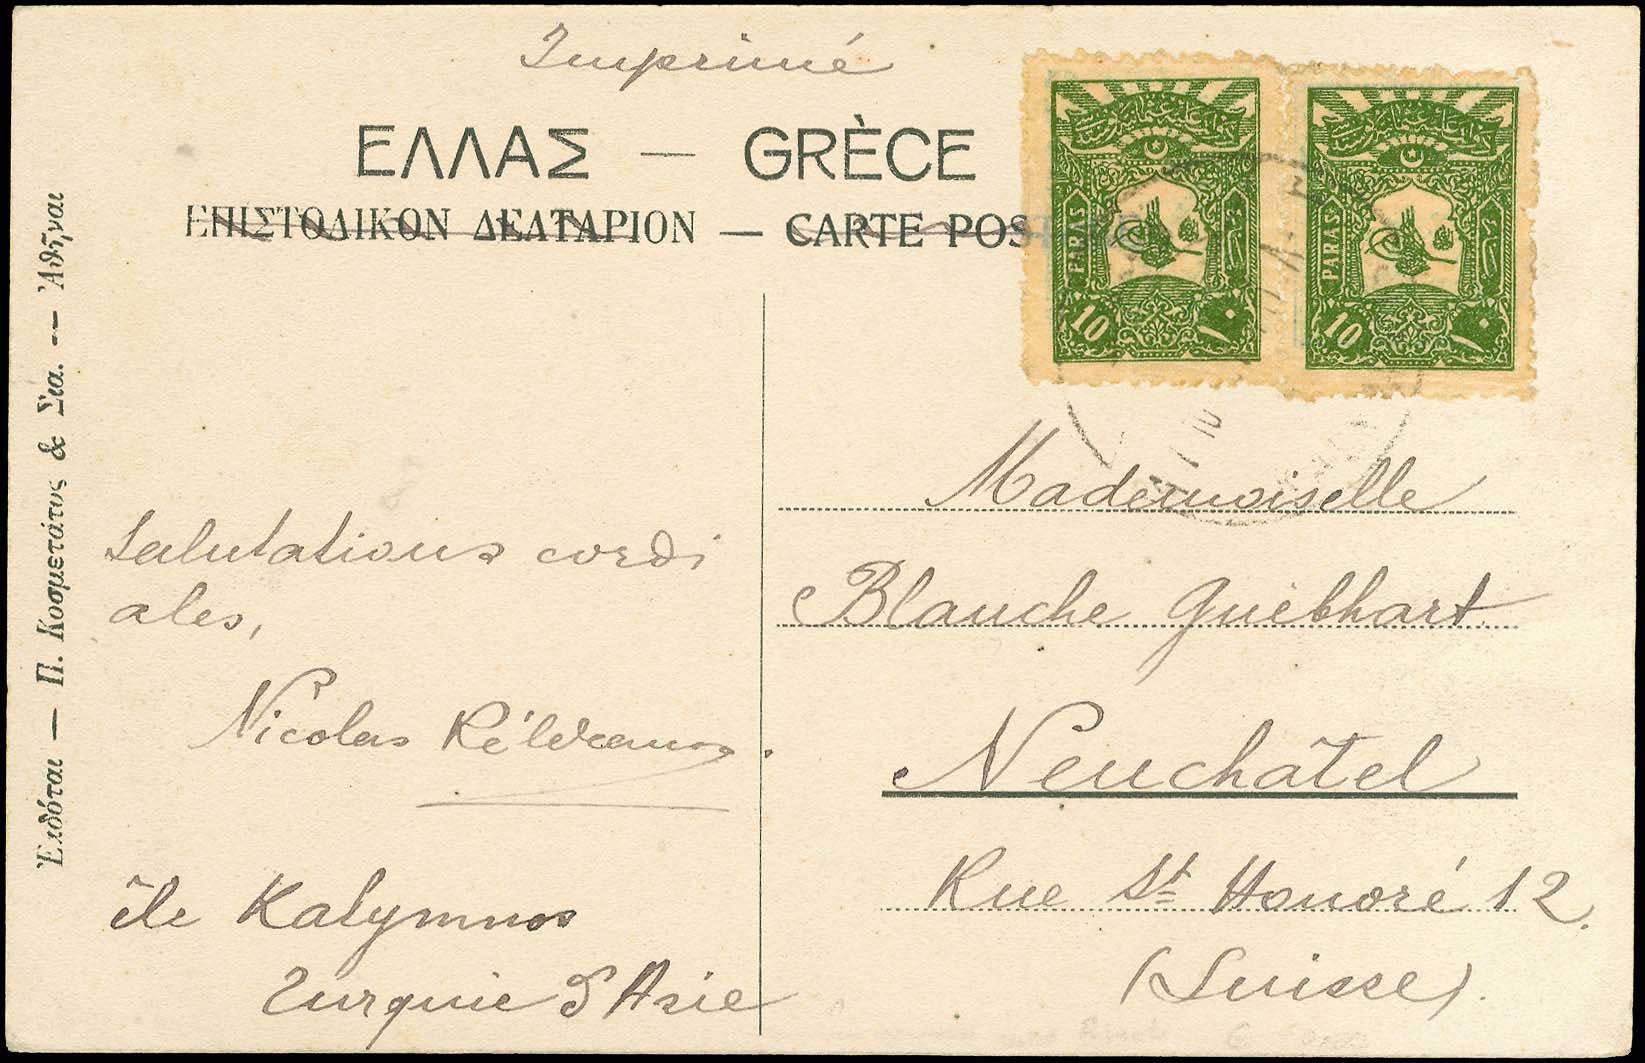 Imprimé
ΕΛΛΑΣ — GRÈCE
ΕΠΙΣΤΟΛΙΚΟΝ ΔΕΛΤΑΡΙΟΝ — CARTE POS
Ἐκδόται — Π. Κοσμετάτος & Σια. — Ἀθῆναι
PARAS
10
١٠
PARAS
10
١٠
Salutations cordi
ales,
Nicolas
île Kalymnos
Turquie d'Asie
Mademoiselle
Blanche Guébhart
Neuchâtel
Rue St Honoré 12.
(Suisse).